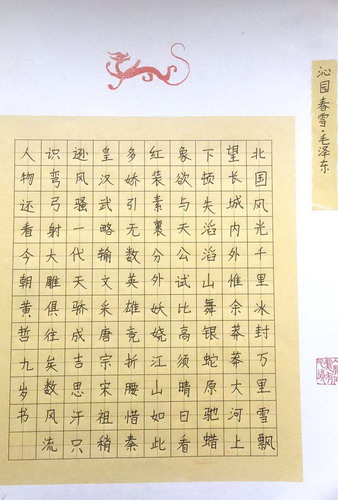 沁园春雪·毛泽东
北国风光千里冰封万里雪飘
望长城内外惟余莽莽大河上
下顿失滔滔山舞银蛇原驰蜡
象欲与天公试比高须晴日看
红装素裹分外妖娆江山如此
多娇引无数英雄竞折腰惜秦
皇汉武略输文采唐宗宋祖稍
逊风骚一代天骄成吉思汗只
识弯弓射大雕俱往矣数风流
人物还看今朝黄哲九岁书